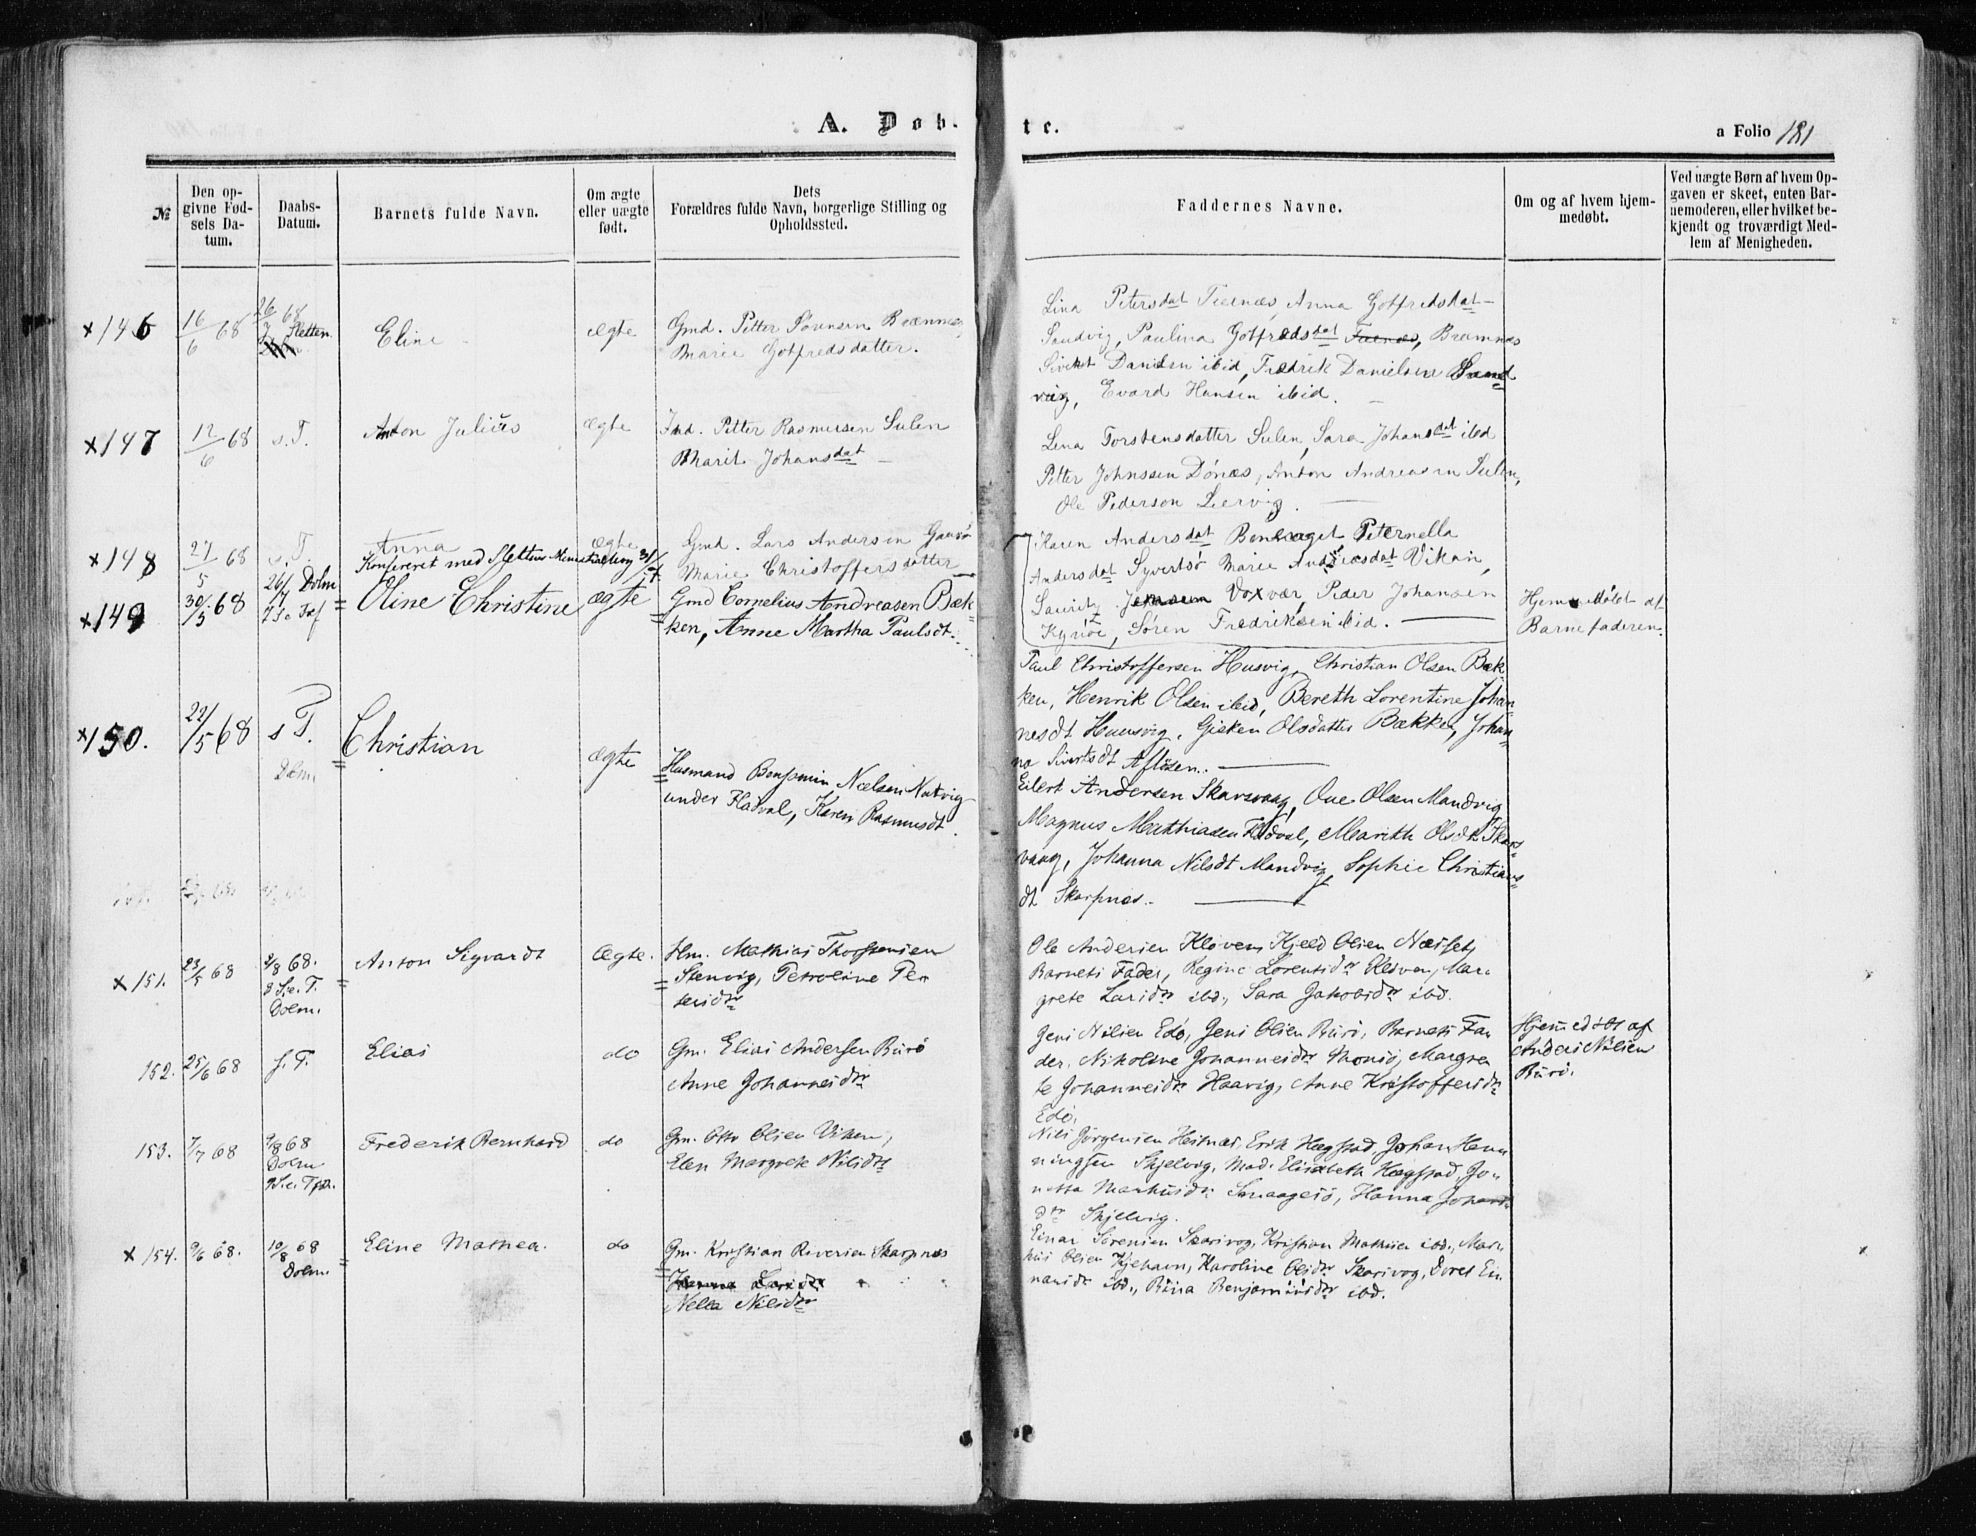 A. Døb-
te.
a Folio 181
№
Den op-
givne Fød-
sels Da-
tum.
Daabs-
Datum.
Barnets fulde Navn.
Om ægte
eller uægte
født.
Dets
Forældres fulde Navn, borgerlige Stilling og
Opholdssted.
Faddernes Navne.
Om og af hvem hjem-
medøbt.
Ved uægte Børn af hvem Op-
gaven er skeet, enten Bar-
nemoderen, eller hvilket be-
kjendt og troværdigt Med-
lem af Menigheden.
×146
16/6 68
26/7 68
Sletten
Eline
ægte
Gmd. Petter Sørensen
Marie Gotfredsdatter.
Lina Petersdat Anna Gotfredsdat
Sandvig, Paulina Gotfredsdat
Danielsen ibid, Fredrik Danielsen Sand
vig, Evard Hansen ibid.
×147
12/6 68
s. T.
Anton Julius
ægte
Petter Rasmussen Sulen
Marit Johansdat
Lena Torstensdatter Sulen, Sara Johansdat ibid
Petter Johnssen Dónæs, Anton Andreasen Sulen,
Ole Pederson Lervig.
×148
27/5 68
s. T.
Anna
Konfereret med Slettens
ægte
Gmd. Lars Andersen
Marie Christoffersdatter
Karen Andersdat Peternella
Andersdat Syvertsø Marie Andreasdat Vikan,
Lauritz Voxvær, Peder Johansen
Søren Fredriksen ibid.
×149
30/5 68
26/7 Dolm
7 S. e. Tref
Oline Christine
ægte
Gmd Cornelius Andreasen Bæk-
ken, Anne Martha Paulsdt.
Hjemmedøbt af
Barnefaderen.
Paul Christoffersen Husvig, Christian Olsen Bæk
ken, Henrik Olsen ibid, Bereth Lorentine Johan-
nesdt Huusvig, Gjeken Olsdatter Bækken, Johan-
na Sivertsdt Afløsen.
×150.
22/5 68
s T.
Dolm
Christian
ægte
Husmand Benjamin Nielsen Natvig
under Fladval, Karen Rasmusdt.
Eilert Andersen Skarsvaag, Ove Olsen Mandvig
Magnus Mathiasen Fladval, Marith Olsdt Skars-
vaag, Johanna Nilsdt Mandvig, Sophie Christians-
dt Skarpnæs.
× 151.
23/5 68
2/8 68.
8 S. e. T.
Dolm.
Anton Sigvardt
Ægte.
Hm. Mathias Thorstensen
Stenvig, Petroline Pe-
tersdtr
Ole Andersen Kløven, Kjeld Olsen Næsset,
Barnets Fader, Regine Lorentsdtr Mar-
grete Larsdtr ibd., Sara Jakobsdtr ibd.
152.
25/6 68
s. T.
Elias
do
Gm. Elias Andersen Burø
Anne Johannesdtr
Jens Nilsen Edø, Jens Olsen Burø, Barnets Fa-
der, Nikoline Johannesdtr Margre-
te Johannesdtr Haavig, Anne Kristoffersdtr
Edø.
Hjemmedøbt af
Anders Nilsen
Burø.
153.
7/7 68
9/8 68
Dolm
9 S. e. Tref.
Frederik Bernhard
do
Gm. Otto Olsen Viken,
Elen Margrete Nilsdtr
Nils Jørgensen Hestnæs, Erik Hægstad, Johan Hen-
ningsen Skjelvig, Mad. Elisabeth Hægstad, Jo-
netta Markusdtr Hanna Johans-
dtr Skjelvig.
× 154.
9/6 68.
10/8 68
Dolm.
Eline Mathea.
do
Gm. Kristian Iversen Skarpnæs
Larsdtr
Nella Nilsdtr
Einar Sørensen Skarsvog, Kristian Mathisen ibd., Mar-
kus Olsen Kjehavn, Karoline Olsdtr Skarsvog, Doret Ei-
narsdtr ibd., Benjaminsdtr ibd.